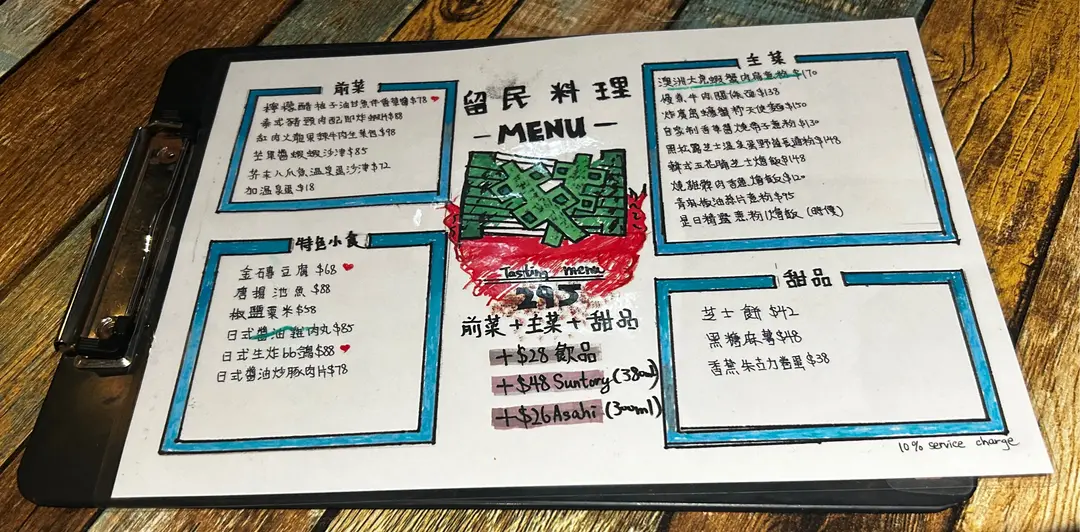 留民料理
- MENU -
前菜
檸檬醋柚子油甘魚伴香草醬$78 ♥
泰式豬頸肉配即炸蝦片$88
紅肉火龍果韃牛肉生菜包$98
芒果醬蝦蝦沙津$85
芥末八爪魚溫泉蛋沙津$72
加溫泉蛋$18
特色小食
金磚豆腐$68 ♥
唐揚池魚$88
椒鹽粟米$58
日式醬油雞肉丸$85
日式生炸bb鴿$88 ♥
日式醬油炒豚肉片$78
Tasting menu
295
前菜+主菜+甜品
+$28 飲品
+$48 Suntory (380ml)
+$26 Asahi (300ml)
主菜
澳洲大虎蝦蟹肉烏意粉$170
慢煮牛肉關係麵$138
炸廣島蠔蟹柳天使麵$150
自家制香草醬燒帶子意粉$130
芝士溫泉蛋野菌長通粉$148
韓式五花腩芝士燴飯$148
燒雞髀肉香蔥燴飯$120
青麻椒油蒜片意粉$95
是日精靈意粉/燴飯 (時價)
甜品
芝士餅 $42
黑糖麻薯$48
香蕉朱古力卷蛋$38
10% service charge